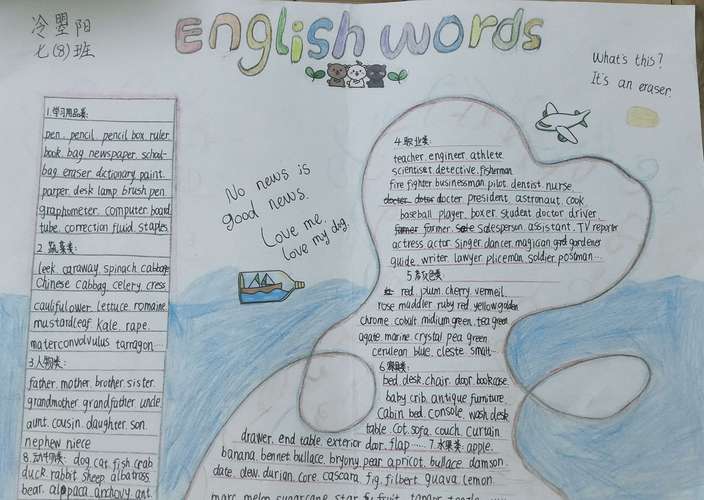 冷曌阳
七(8)班
English words
What's this?
It's an eraser.
1.学习用品类:
pen. pencil. pencil box. ruler
book. bag. newspaper. school-
bag. eraser. dictionary. paint
parper. desk lamp. brush pen.
graphometer. computer. board
tube. correction fluid. staples.
2.蔬菜类:
leek. caraway. spinach. cabbage
Chinese cabbag. celery. cress.
caulifulower. lettuce. romaine.
mustardleaf. kale. rape.
materconvolvulus. tarragon.....
3.人物类:
father. mother. brother. sister.
grandmother. grandfather. uncle.
aunt. cousin. daughter. son.
nephew. niece
8.动物类: dog. cat. fish. crab
duck. rabbit. sheep. albatross.
bear. alpaca. anchovy. ant.
No news is
good news.
Love me.
love my dog.
4.职业类:
teacher. engineer. athlete
scientiset. detective. fisherman.
fire fighter. businessman. pilot. dentist. nurse.
doctor. president. astronaut. cook
baseball player. boxer. student. doctor. driver.
former. salesperson. assistant. TV reporter
actress. actor. singer. dancer. magican. gardener
guide. writer. lawyer. pliceman. soldier. postman....
5.颜色类:
red. plum. cherry. vermeil.
rose. maddler. ruby red. yellow. golden
chrome. cobalt. midium green. tea green
agate. marine. crystal. pea green.
cerulean blue. cleste. smalt....
6.家具类:
bed. desk. chair. door. bookcase.
baby crib. antique furniture.
Cabin bed. Console. wash desk
table. Cot. sofa. couch. Curtain
drawer. end table. exterior door. flap ...... 7.水果类: apple.
banana. bennet. bullace. bryony. pear. apricot. bullace. damson.
date. dew. durian. core. cascara. fig. filbert. guava. lemon.
marc. melon. sugarcane. star fruit.